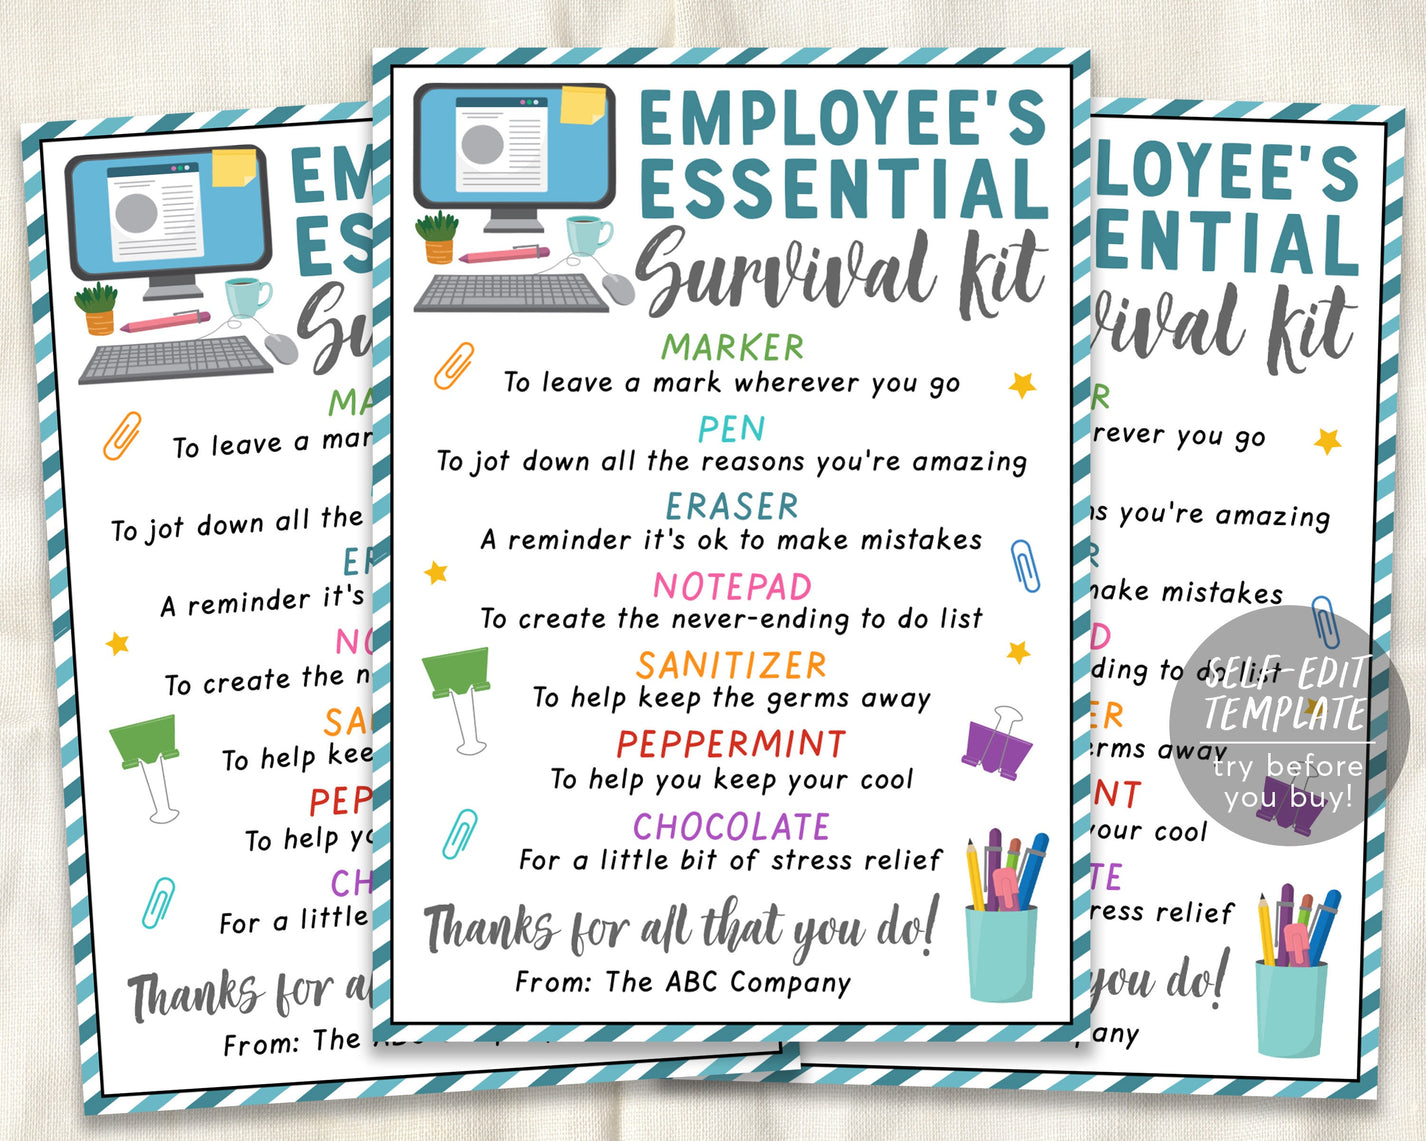 EMPLOYEE'S
ESSENTIAL
Survival Kit
MARKER
To leave a mark wherever you go
PEN
To jot down all the reasons you're amazing
ERASER
A reminder it's ok to make mistakes
NOTEPAD
To create the never-ending to do list
SANITIZER
To help keep the germs away
PEPPERMINT
To help you keep your cool
CHOCOLATE
For a little bit of stress relief
Thanks for all that you do!
From: The ABC Company
EM
ES
Su
MA
To leave a mar
To jot down all the
ER
A reminder it's
NO
To create the n
SA
To help kee
PEP
To help yo
CH
For a little
Thanks for al
From: The ABC
LOYEE'S
ENTIAL
vival Kit
R
rever you go
ns you're amazing
R
make mistakes
D
ding to do list
ER
erms away
INT
your cool
TE
ress relief
you do!
pany
SELF-EDIT
TEMPLATE
try before
you buy!